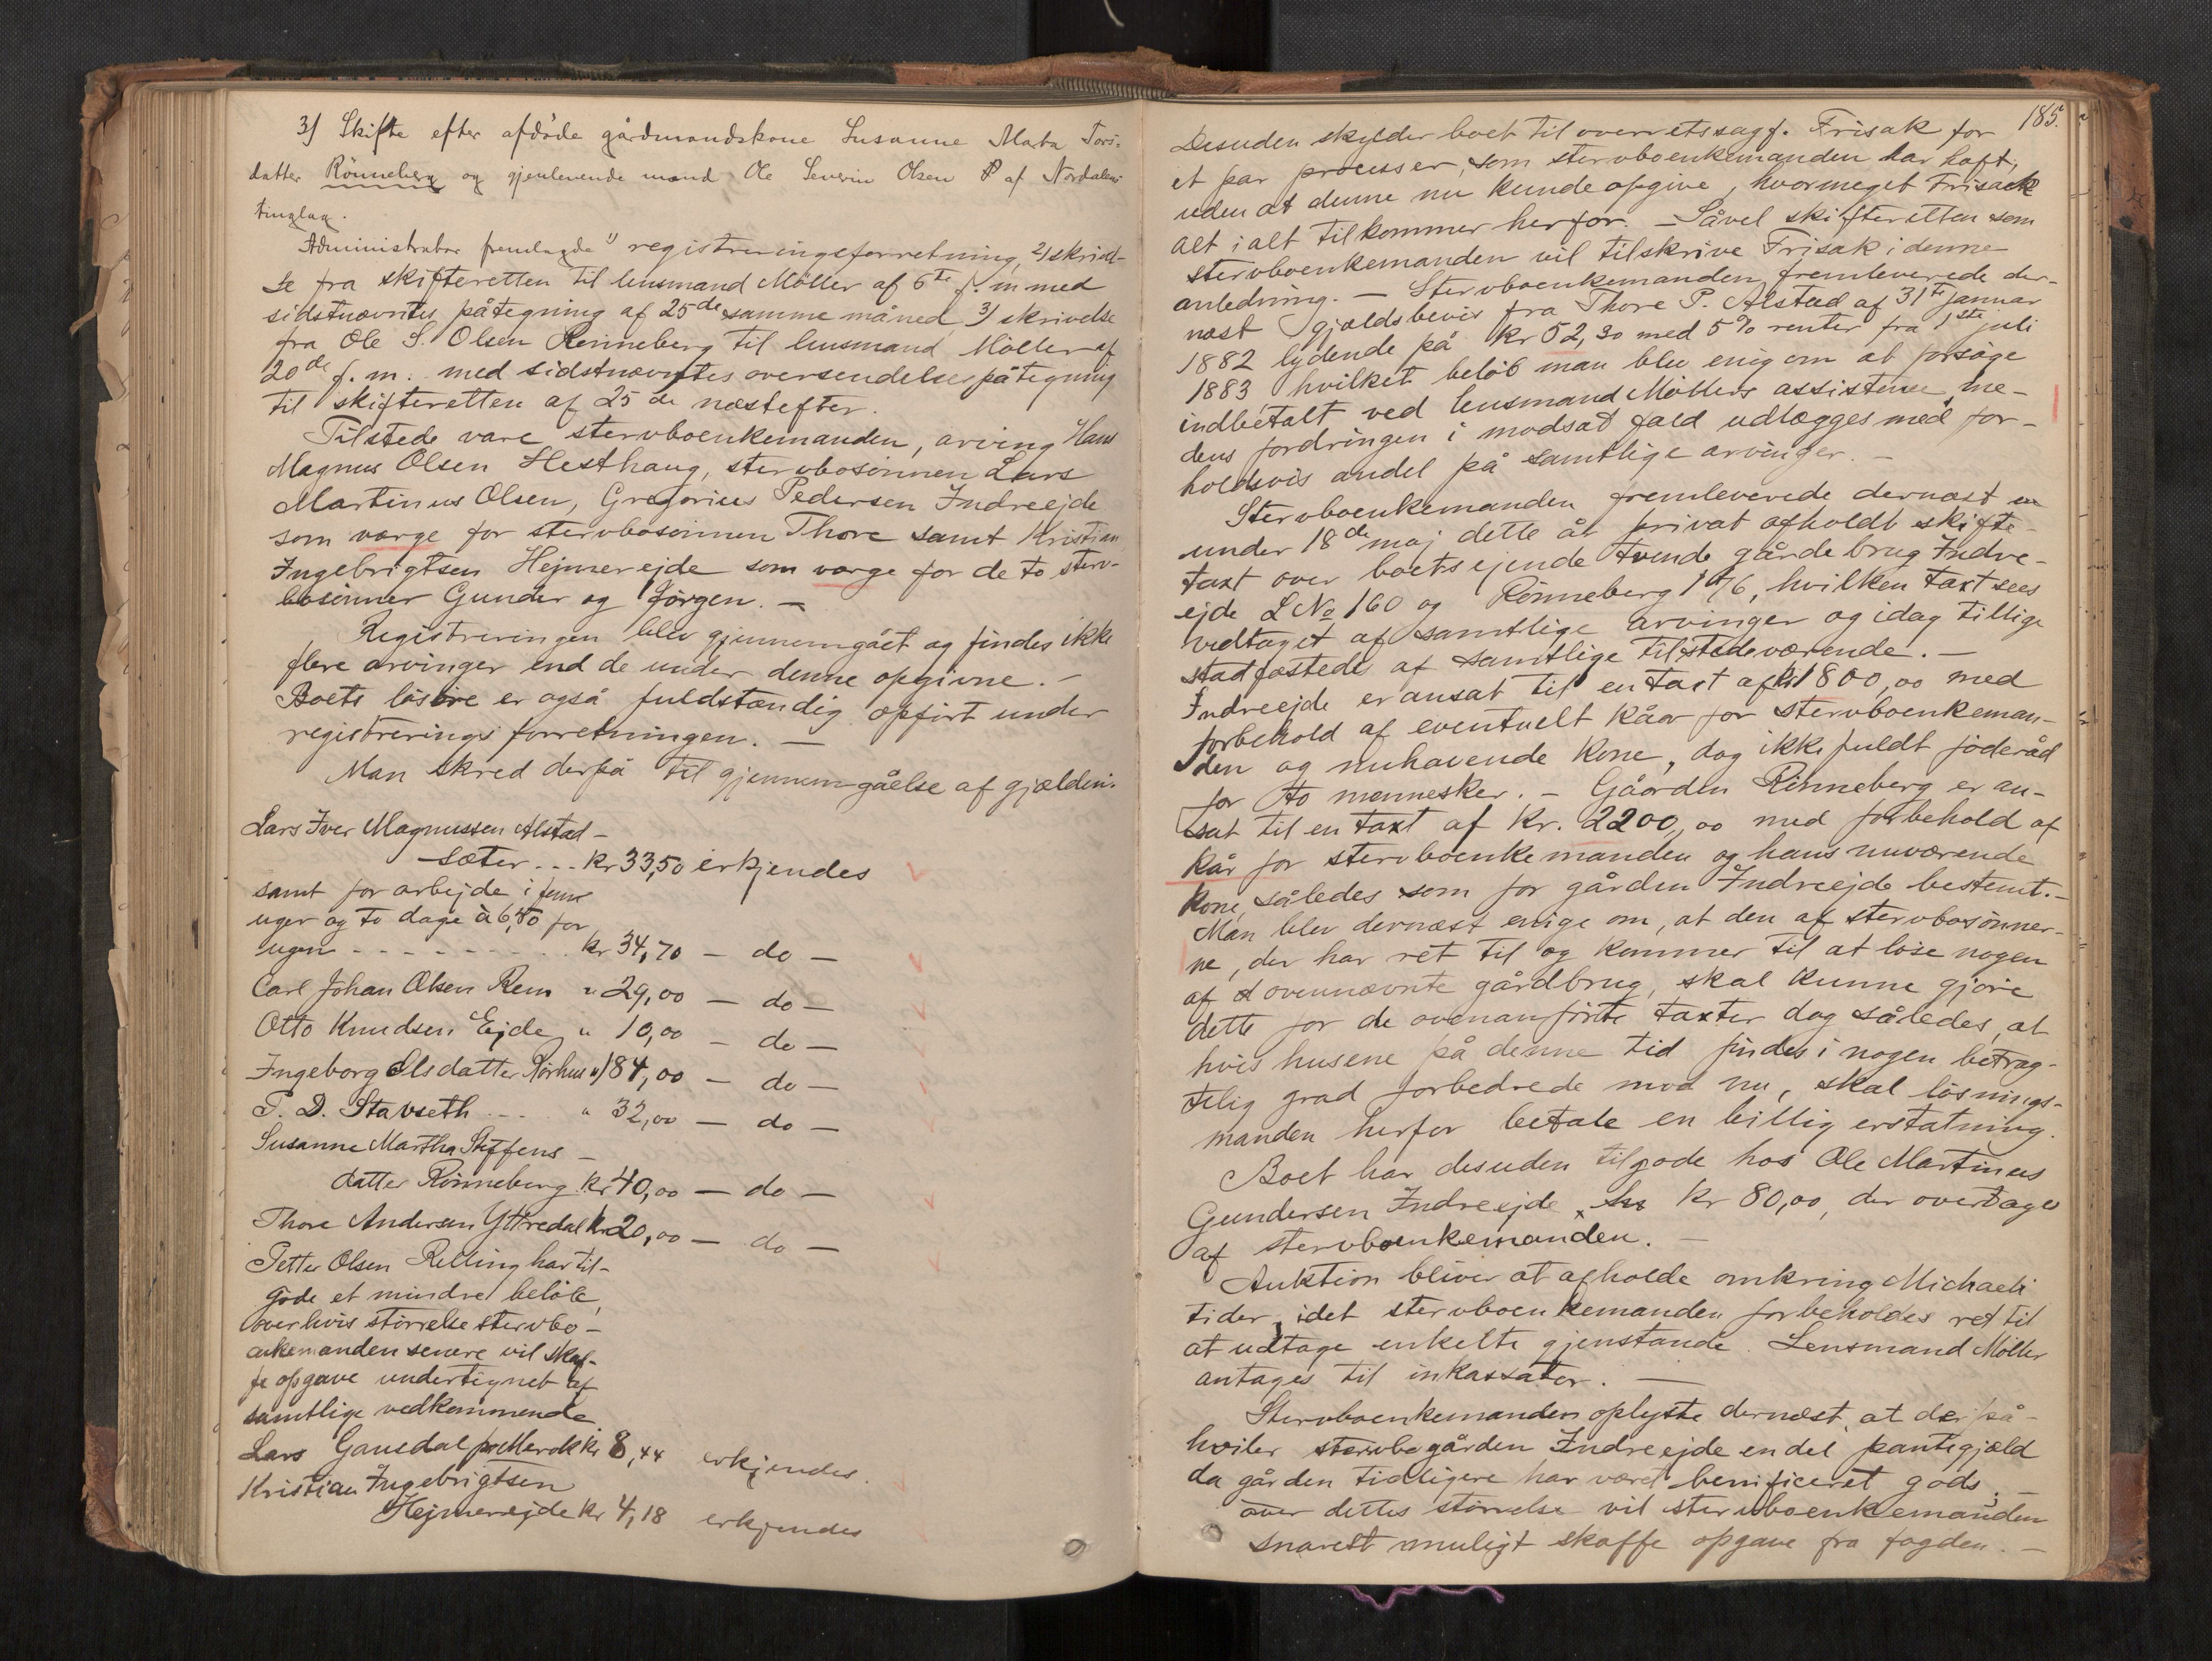 3) Skifte efter afdöde gårdmandskone Susanne Marta Tors-
datter Rönneberg og gjenlevende mand Ole Severin Olsen af Nordalens
tinglag.
Administrator fremlagde 1) registreringsforretning, 2) skrivel-
se fra skifteretten til lensmand Möller af 6te f. m. med
sidstnævntes påtegning af 25de samme måned, 3) skrivelse
fra Ole S. Olsen Rönneberg til lensmand Möller af
20de f. m. med sidstnævntes oversendelsespåtegning
til skifteretten af 25de næstefter.
Tilstede vare stervboenkemanden, arving Hans
Magnus Olsen Hesthaug, stervbosönnen Lars
Martinus Olsen, Gregorius Pedersen Indreejde
som værge for stervbosönnen Thore samt Kristian
Ingebrigtsen Hejmerejde som værge for de to sterv-
bosönner Gunder og Jörgen. —
Registreringen blev gjennemgået og findes ikke
flere arvinger end de under denne opgivne. —
Boets lösöre er også fuldstændig opfört under
registreringsforretningen. —
Man skred derpå til gjennemgåelse af gjælden:
Lars Iver Magnussen Alstad-
sæter . . . kr 33,50 erkjendes
samt for arbejde i fem
uger og to dage à 6,50 for
ugen - - - - - - - - . kr 34,70 — do —
Carl Johan Olsen Rem " 29,00 — do —
Otto Knudsen Ejde " 10,00 — do —
Ingeborg Olsdatter Rörhus " 184,00 — do —
P. D. Stavseth . . . . " 32,00 — do —
Susanne Martha Steffens-
datter Rönneberg kr 40,00 — do —
Thore Andersen Yttredal kr 20,00 — do —
Petter Olsen Relling har til-
gode et mindre belöb,
over hvis störrelse stervbo-
enkemanden senere vil skaf-
fe opgave undertegnet af
samtlige vedkommende
Lars Gausdal pr Merok kr 8,44 erkjendes.
Kristian Ingebrigtsen
Hejmerejde kr 4,18 erkjendes
185.
Desuden skylder boet til overretssagf. Frisak for
et par processer, som stervboenkemanden har haft,
uden at denne nu kunde opgive, hvormeget Frisak
alt i alt tilkommer herfor. — Såvel skifteretten som
stervboenkemanden vil tilskrive Frisak i denne
anledning. — Stervboenkemanden fremleverede der-
næst gjældsbevis fra Thore P. Alstad af 31te januar
1882 lydende på kr 52,30 med 5% renter fra 1ste juli
1883 hvilket belöb man blev enig om at forsöge
indbetalt ved lensmand Möllers assistence, me-
dens fordringen i modsat fald udlægges med for-
holdsvis andel på samtlige arvinger. —
Stervboenkemanden fremleverede dernæst en
under 18de maj dette år privat afholdt skifte-
taxt over boets ejende tvende gårdebrug Indre-
ejde L No 160 og Rönneberg 176, hvilken taxt sees
vedtaget af samtlige arvinger og idag tillige
stadfæstedes af samtlige tilstedeværende. —
Indreejde er ansat til en taxt af kr 1800,00 med
forbehold af eventuelt kår for stervboenkeman-
den og nuhavende kone, dog ikke fuldt föderåd
for to mennesker. — Gården Rönneberg er an-
sat til en taxt af kr. 2200,00 med forbehold af
kår for stervboenkemanden og hans nuværende
kone således som for gården Indreejde bestemt. —
Man blev dernæst enige om, at den af stervbosönner-
ne, der har ret til og kommer til at löse nogen
af ovennævnte gårdbrug, skal kunne gjöre
dette for de ovenanförte taxter dog således, at
hvis husene på denne tid findes i nogen betrag-
telig grad forbedrede mod nu, skal lösnings-
manden herfor betale en billig erstatning.
Boet har desuden tilgode hos Ole Martinus
Gundersen Indreejde kr 80,00, der overtages
af stervboenkemanden. —
Auktion bliver at afholde omkring Michaeli
tider, idet stervboenkemanden forbeholdes ret til
at udtage enkelte gjenstande. Lensmand Möller
antages til inkassator. —
Stervboenkemanden oplyste dernæst, at der på-
hviler stervbogården Indreejde en del pantegjæld
da gården tidligere har været benificeret gods; —
over dettes störrelse vil stervboenkemanden
snarest muligt skaffe opgave fra fogden. —